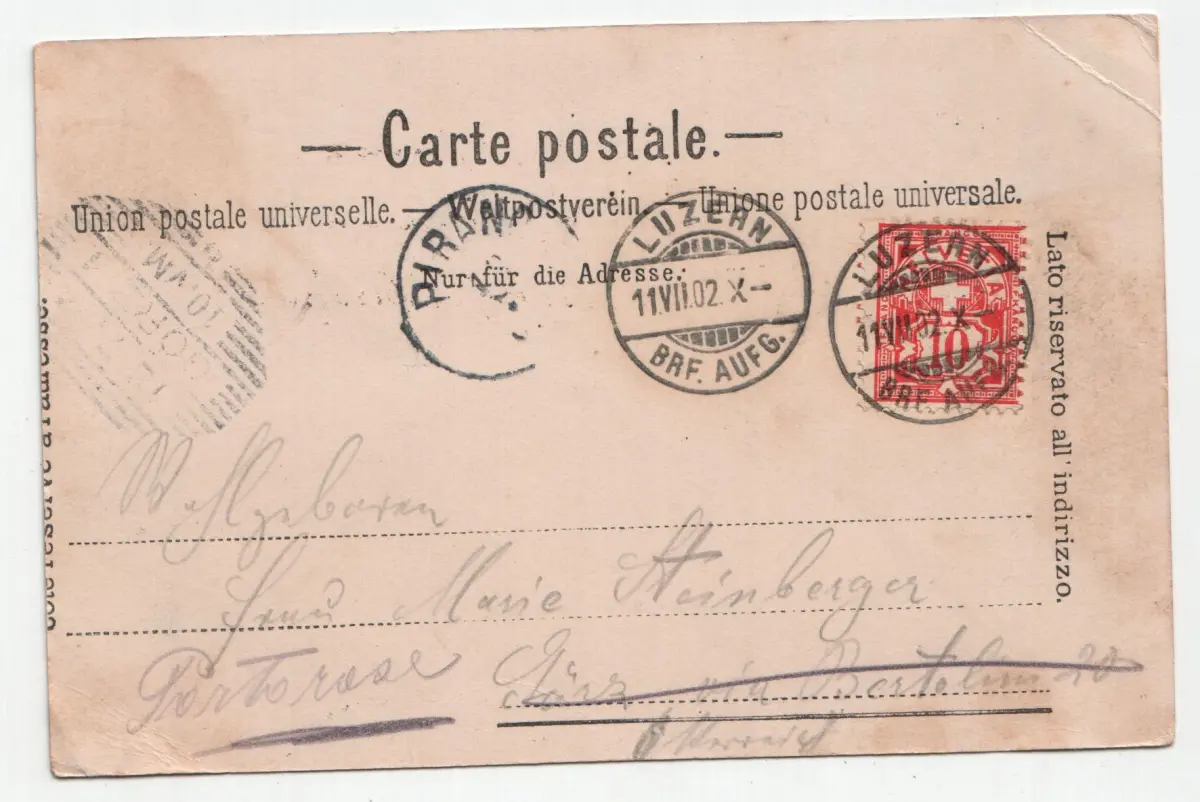 — Carte postale. —
Union postale universelle. — Weltpostverein — Unione postale universale.
Nur für die Adresse.
Côté réservé à l'adresse.
Lato riservato all' indirizzo.
PIRANO
LUZERN
11.VII.02.X–
BRF. AUFG.
LUZERN
11.VII.02.X–
BRF. AUFG.
HELVETIA
10
10 VM
Wohlgeboren
Frau Marie Steinberger
Portorose Görz via Bertolini 20
Österreich